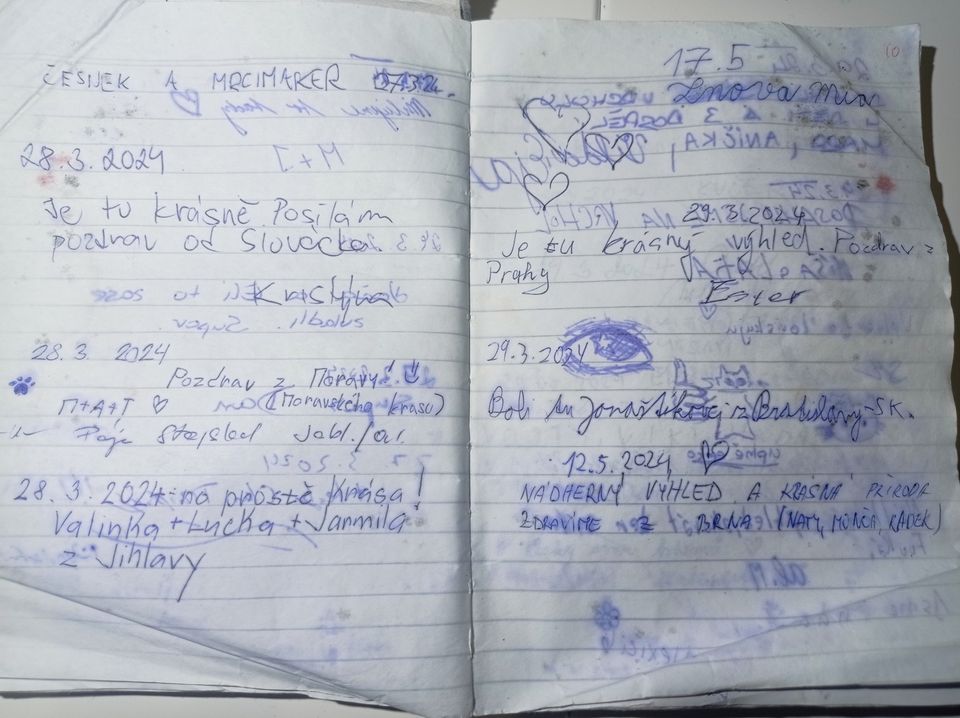 ČESNEK A MRCIMAKER
28.3.2024
Je tu krásně. Posílám
pozdrav od Slovácka
Kristýna
28.3. 2024
Pozdrav z Moravy!
M+A+T ♡ (Moravského krasu)
Pája Stejskal Jabl./Orl.
28.3. 2024 no prostě krása!
Valinka + Lucka + Jarmila
z Jihlavy
10
17.5
Znova
29.3.2024
Je tu krásný výhled. Pozdrav z
Prahy
Ester
29.3.2024
Boli tu z Bratislavy - SK.
12.5.2024
NÁDHERNÝ VÝHLED A KRÁSNÁ PŘÍRODA
ZDRAVÍME Z BRNA (NATY, MONČA, RADEK)